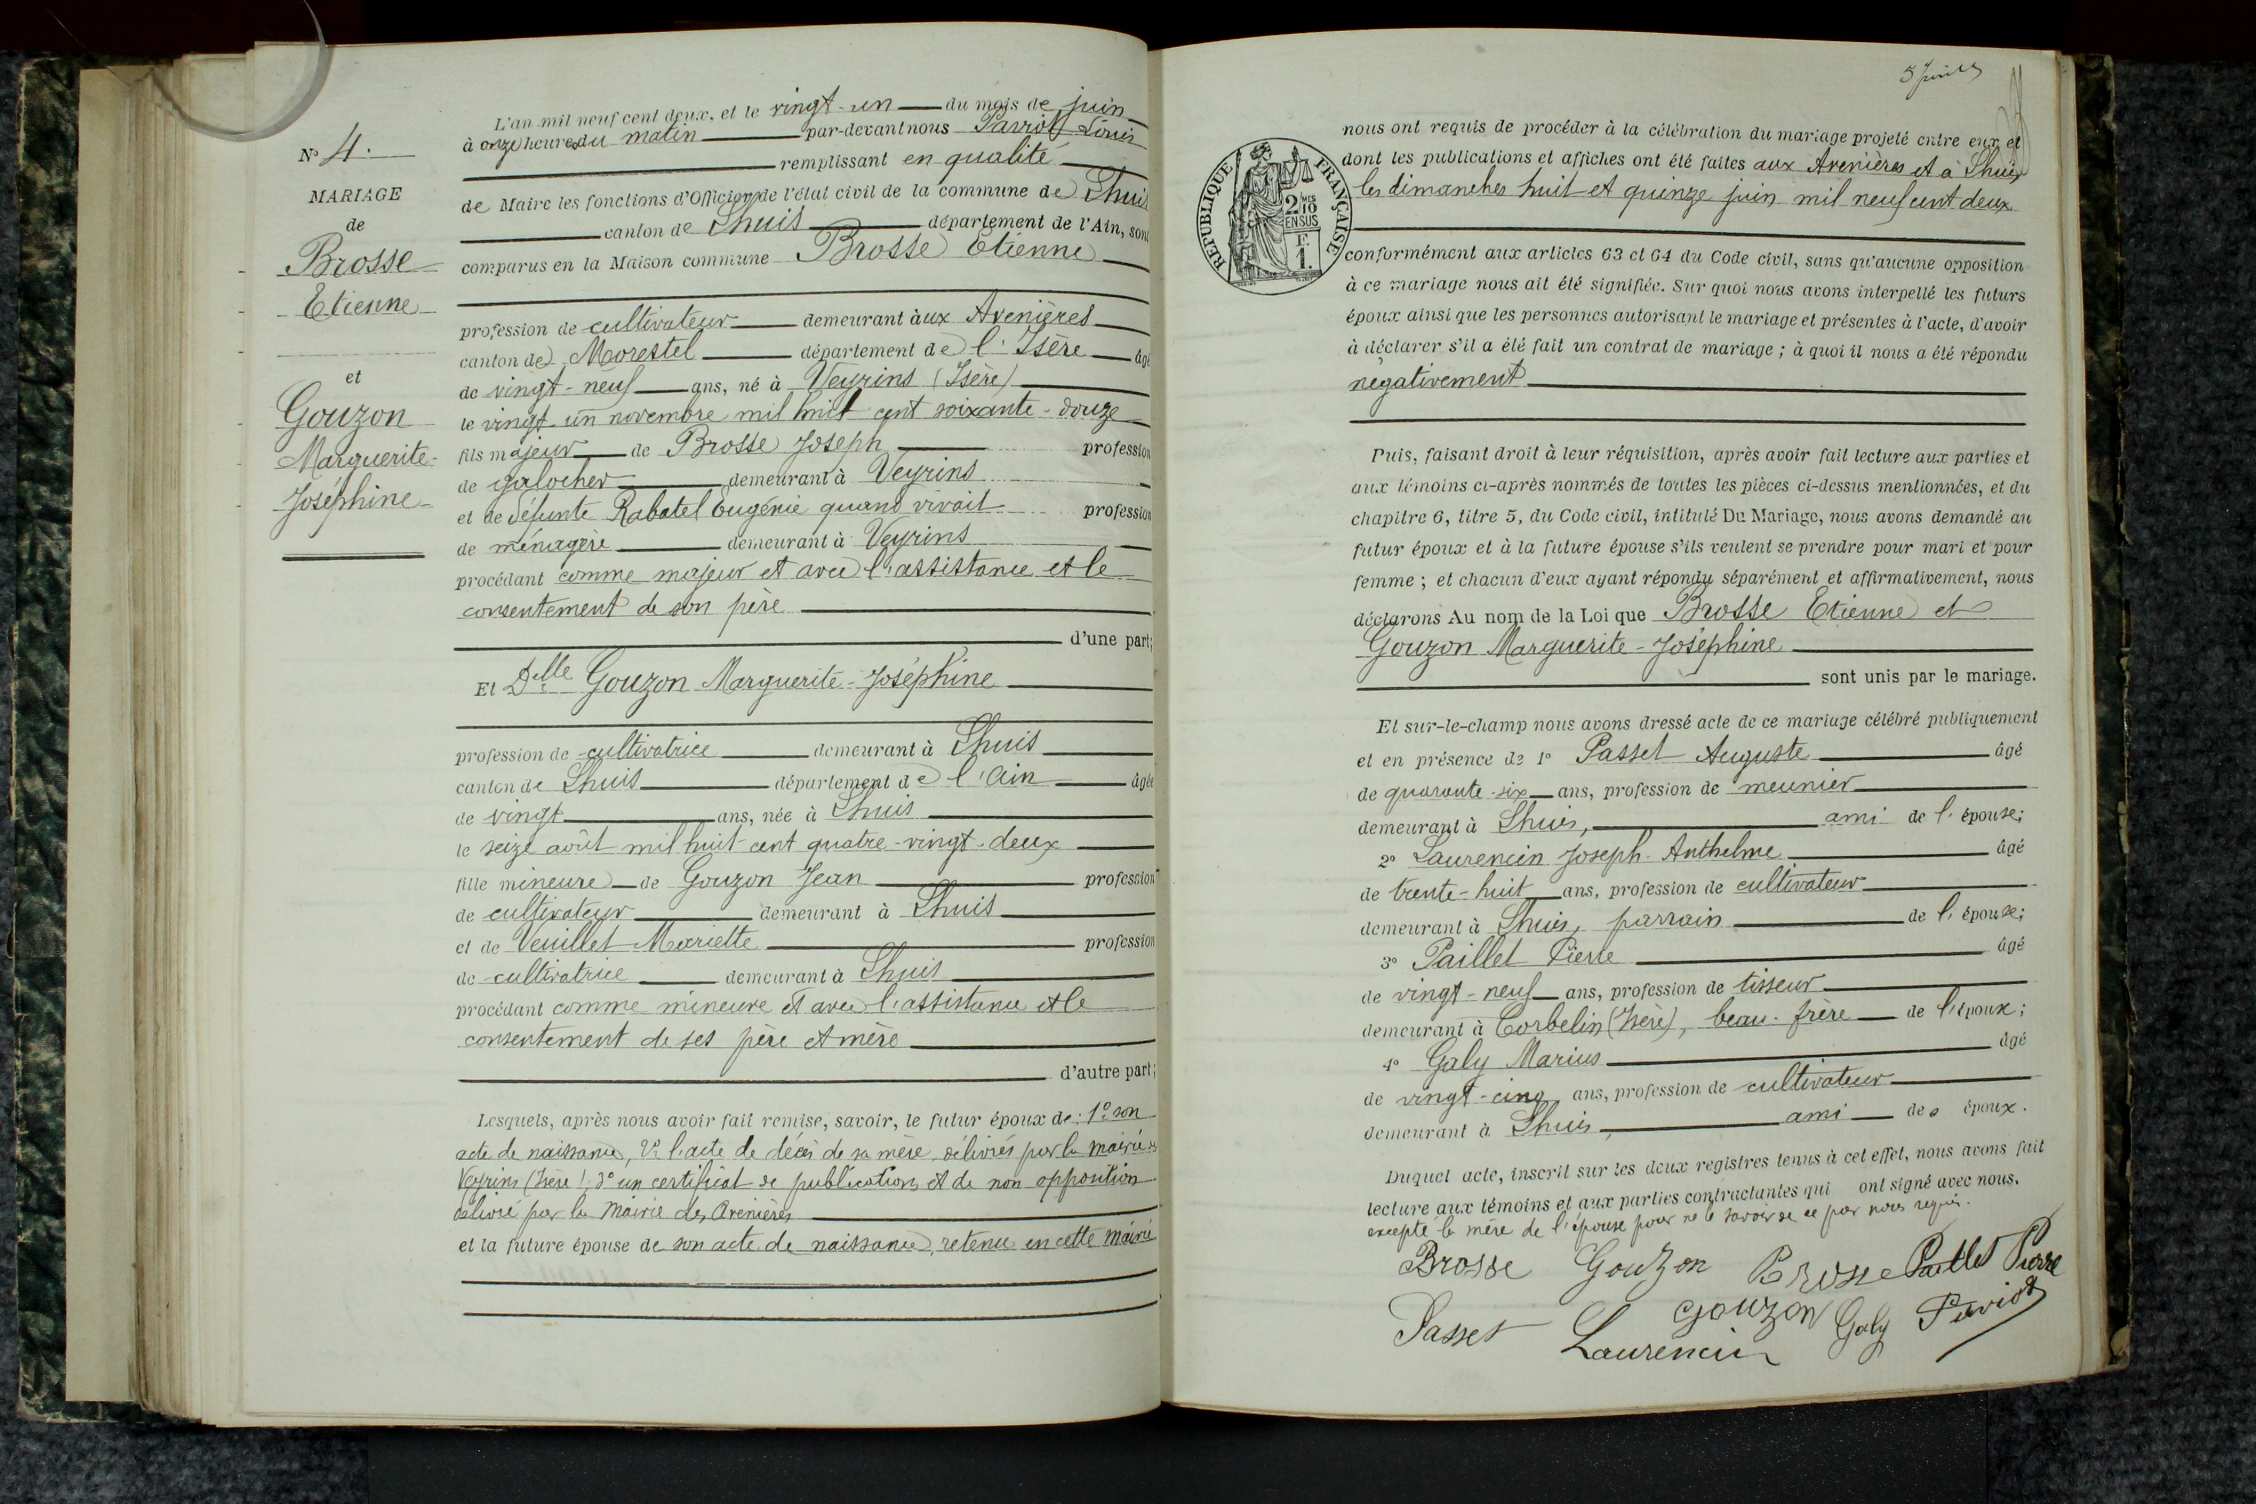 N° 4.
MARIAGE
de
Brosse
Etienne
et
Gouzon
Marguerite-
Joséphine
L'an mil neuf cent deux, et le vingt-un du mois de juin
à onze heures du matin par-devant nous Parriot Louis
remplissant en qualité
de Maire les fonctions d'Officier de l'état civil de la commune de Lhuis
canton de Lhuis département de l'Ain, sont
comparus en la Maison commune Brosse Etienne
profession de cultivateur demeurant aux Avenières
canton de Morestel département de l'Isère âgé
de vingt-neuf ans, né à Veyrins (Isère)
le vingt un novembre mil huit cent soixante-douze
fils majeur de Brosse Joseph profession
de galocher demeurant à Veyrins
et de défunte Rabatel Eugénie quand vivait profession
de ménagère demeurant à Veyrins
procédant comme majeur et avec l'assistance et le
consentement de son père
d'une part;
Et Delle Gouzon Marguerite-Joséphine
profession de cultivatrice demeurant à Lhuis
canton de Lhuis département de l'Ain âgée
de vingt ans, née à Lhuis
le seize août mil huit cent quatre-vingt-deux
fille mineure de Gouzon Jean profession
de cultivateur demeurant à Lhuis
et de Veuillet Mariette profession
de cultivatrice demeurant à Lhuis
procédant comme mineure et avec l'assistance et le
consentement de ses père et mère
d'autre part;
Lesquels, après nous avoir fait remise, savoir, le futur époux de: 1° son
acte de naissance, 2° l'acte de décès de sa mère délivrés par la mairie de
Veyrins (Isère), 3° un certificat de publications et de non opposition
délivré par la Mairie des Avenières
et la future épouse de son acte de naissance, retenu en cette mairie
5 
RÉPUBLIQUE FRANÇAISE
2 MES
10
EN SUS
F.
1.
nous ont requis de procéder à la célébration du mariage projeté entre eux et
dont les publications et affiches ont été faites aux Avenières et à Lhuis
les dimanches huit et quinze juin mil neuf cent deux
conformément aux articles 63 et 64 du Code civil, sans qu'aucune opposition
à ce mariage nous ait été signifiée. Sur quoi nous avons interpellé les futurs
époux ainsi que les personnes autorisant le mariage et présentes à l'acte, d'avoir
à déclarer s'il a été fait un contrat de mariage; à quoi il nous a été répondu
négativement
Puis, faisant droit à leur réquisition, après avoir fait lecture aux parties et
aux témoins ci-après nommés de toutes les pièces ci-dessus mentionnées, et du
chapitre 6, titre 5, du Code civil, intitulé Du Mariage, nous avons demandé au
futur époux et à la future épouse s'ils veulent se prendre pour mari et pour
femme; et chacun d'eux ayant répondu séparément et affirmativement, nous
déclarons Au nom de la Loi que Brosse Etienne et
Gouzon Marguerite-Joséphine
sont unis par le mariage.
Et sur-le-champ nous avons dressé acte de ce mariage célébré publiquement
et en présence de 1° Passet Auguste âgé
de quarante-six ans, profession de meunier
demeurant à Lhuis, ami de l'épouse;
2° Laurencin Joseph-Anthelme âgé
de trente-huit ans, profession de cultivateur
demeurant à Lhuis, parrain de l'épouse;
3° Paillet Pierre âgé
de vingt-neuf ans, profession de tisseur
demeurant à Corbelin (Isère), beau-frère de l'époux;
4° Galy Marius âgé
de vingt-cinq ans, profession de cultivateur
demeurant à Lhuis, ami des époux.
Duquel acte, inscrit sur les deux registres tenus à cet effet, nous avons fait
lecture aux témoins et aux parties contractantes qui ont signé avec nous.
excepté la mère de l'épouse pour ne le savoir de ce par nous requis.
Brosse Gouzon Brosse Paillet Pierre
Passet Laurencin Gouzon Galy Parriot